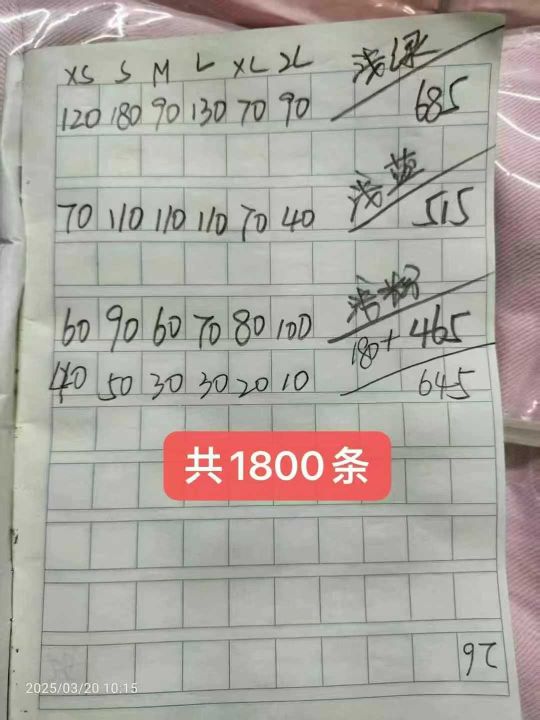 XS S M L XL 2L 浅绿
120 180 90 130 70 90 685
浅蓝
70 110 110 110 70 40 515
浅粉
60 90 60 70 80 100 180+ 465
40 50 30 30 20 10 645
共1800条
26
2025/03/20 10:15